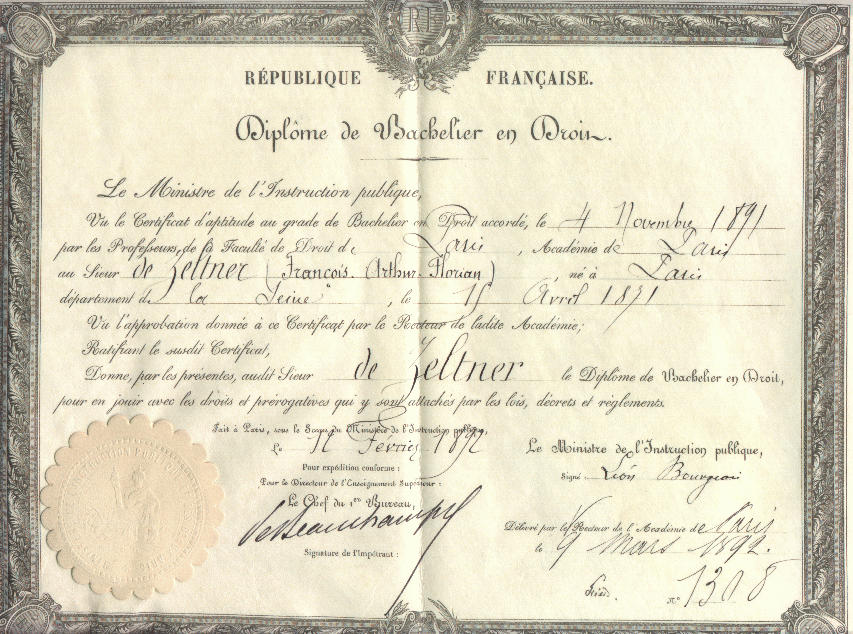 RF
RÉPUBLIQUE FRANÇAISE.
Diplôme de Bachelier en Droit.
Le Ministre de l'Instruction publique,
Vu le Certificat d'aptitude au grade de Bachelier en Droit accordé, le 4 Novembre 1891
par les Professeurs de la Faculté de Droit de Paris, Académie de Paris
au Sieur de Zeltner (François-Arthur-Florian) né à Paris
département de la Seine, le 15 Avril 1871
Vu l'approbation donnée à ce Certificat par le Recteur de ladite Académie;
Ratifiant le susdit Certificat,
Donne, par les présentes, audit Sieur de Zeltner le Diplôme de Bachelier en Droit,
pour en jouir avec les droits et prérogatives qui y sont attachés par les lois, décrets et règlements.
Fait à Paris, sous le Sceau du Ministère de l'Instruction publique,
Le 12 Février 1892
Pour expédition conforme:
Pour le Directeur de l'Enseignement Supérieur:
Le Chef du 1er Bureau,
Signature de l'Impétrant:
Le Ministre de l'Instruction publique,
Signé: Léon Bourgeois
Délivré par le Recteur de l'Académie de Paris
le 9 Mars 1892.
n° 1308